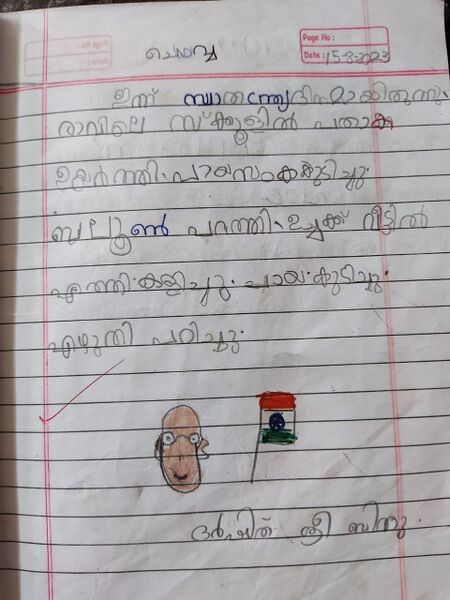 Page No :
ചൊവ്വ
Date : 15-8-2023
ഇന്ന് സ്വാതന്ത്ര്യദിനമായിരുന്നു.
രാവിലെ സ്ക്കൂളിൽ പതാക
ഉയർത്തി. പായസം കുടിച്ചു.
ബലൂൺ പറത്തി. ഉച്ചക്ക് വീട്ടിൽ
എത്തി. കളിച്ചു. ചായ കുടിച്ചു.
എഴുതി പഠിച്ചു.
ശ്രീ ബിനു.